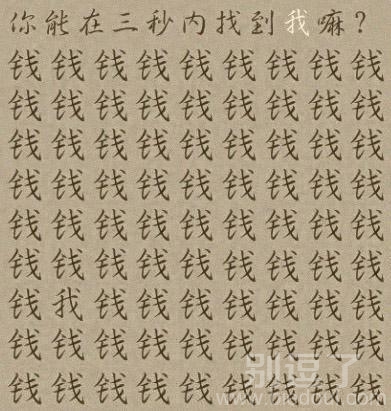 你能在三秒内找到我嘛？
钱钱钱钱钱钱钱钱钱
钱钱钱钱钱钱钱钱钱
钱钱钱钱钱钱钱钱钱
钱钱钱钱钱钱钱钱钱
钱钱钱钱钱钱钱钱钱
钱钱钱钱钱钱钱钱钱
钱我钱钱钱钱钱钱钱
钱钱钱钱钱钱钱钱钱
钱钱钱钱钱钱钱钱钱
别逗了